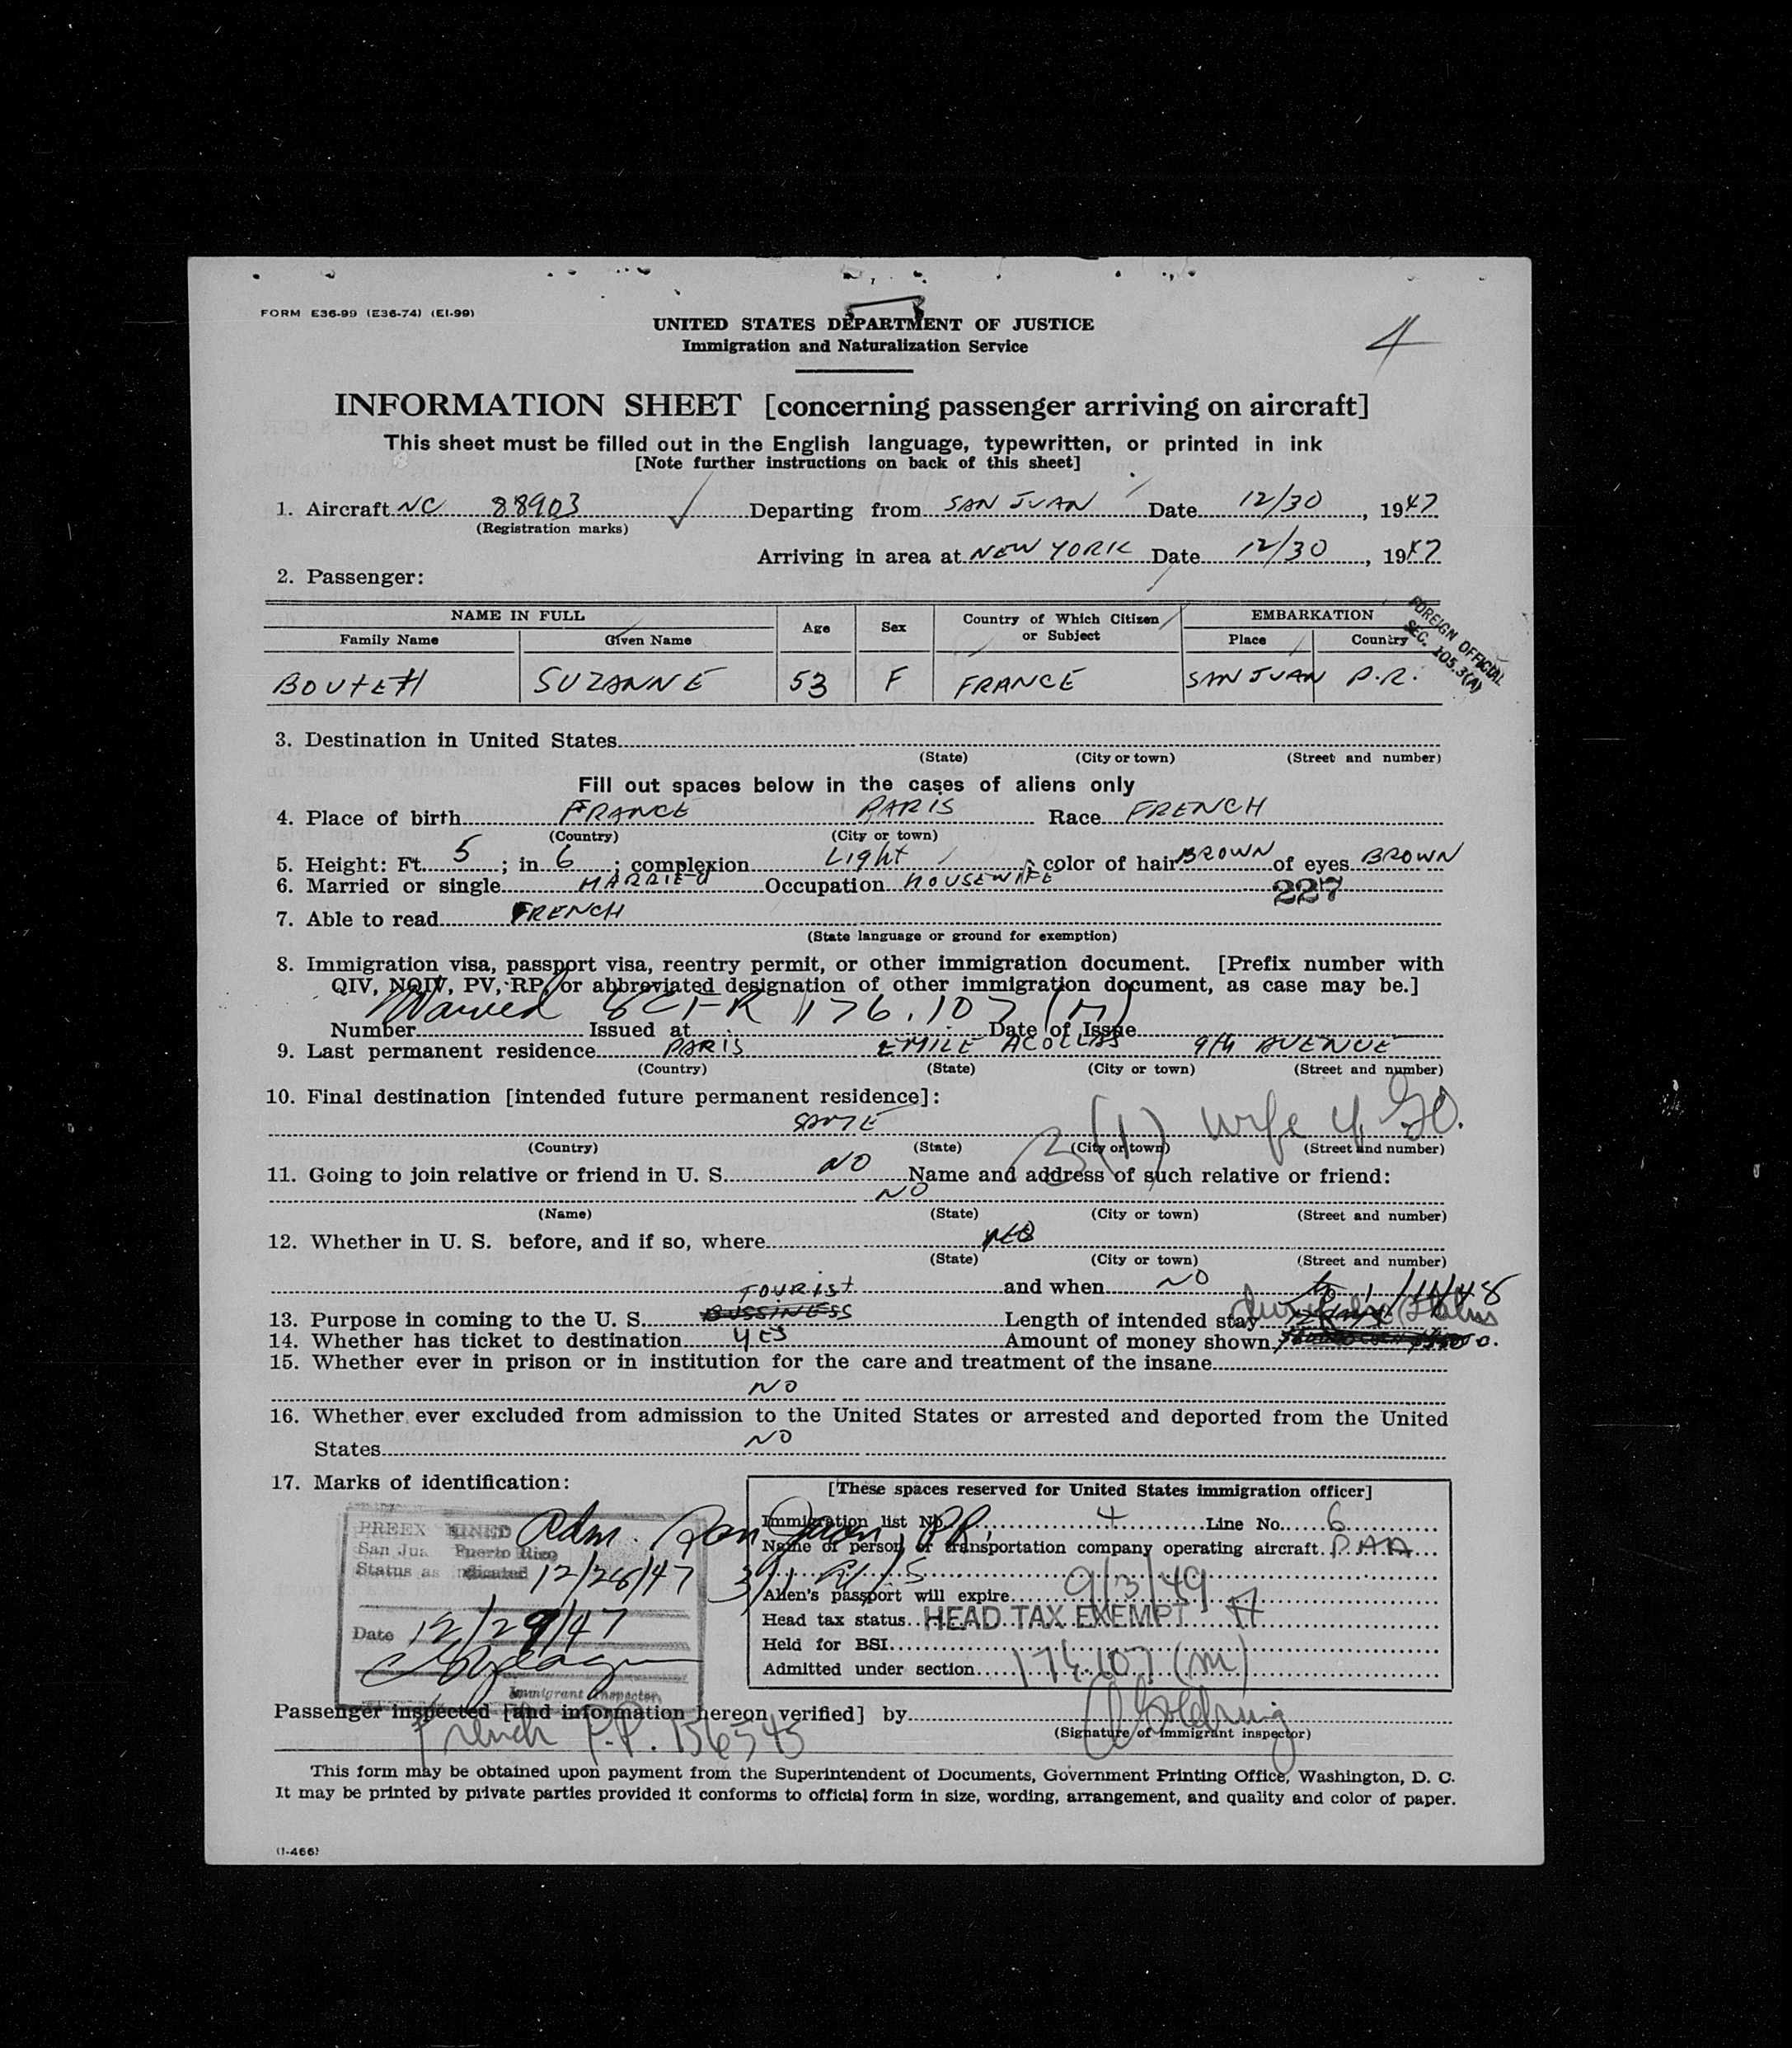 FORM E36-99 (E36-74) (EI-99)
UNITED STATES DEPARTMENT OF JUSTICE
Immigration and Naturalization Service
4
INFORMATION SHEET [concerning passenger arriving on aircraft]
This sheet must be filled out in the English language, typewritten, or printed in ink
[Note further instructions on back of this sheet]
1. Aircraft NC 88903 Departing from SAN JUAN Date 12/30, 1947
(Registration marks)
Arriving in area at NEW YORK Date 12/30, 1947
2. Passenger:
NAME IN FULL Age Sex Country of Which Citizen or Subject EMBARKATION
Family Name Given Name Place Country
FOREIGN OFFICIAL
SEC. 105.3(A)
SUZANNE 53 F FRANCE SAN JUAN P.R.
3. Destination in United States
(State) (City or town) (Street and number)
Fill out spaces below in the cases of aliens only
4. Place of birth FRANCE PARIS Race FRENCH
(Country) (City or town)
5. Height: Ft. 5; in 6; complexion Light; color of hair BROWN of eyes BROWN
6. Married or single MARRIED Occupation HOUSEWIFE
227
7. Able to read FRENCH
(State language or ground for exemption)
8. Immigration visa, passport visa, reentry permit, or other immigration document. [Prefix number with
QIV, NQIV, PV, RP, or abbreviated designation of other immigration document, as case may be.]
Waived 8 CFR 176.107 (M)
Number Issued at Date of Issue
9. Last permanent residence PARIS EMILE ACOLLAS 9th AVENUE
(Country) (State) (City or town) (Street and number)
10. Final destination [intended future permanent residence]:
SAME 3(1) wife of GO.
(Country) (State) (City or town) (Street and number)
11. Going to join relative or friend in U. S. NO Name and address of such relative or friend:
NO
(Name) (State) (City or town) (Street and number)
12. Whether in U. S. before, and if so, where
(State) (City or town) (Street and number)
and when NO
TOURIST
13. Purpose in coming to the U. S. BUSSINESS Length of intended stay
14. Whether has ticket to destination YES Amount of money shown
15. Whether ever in prison or in institution for the care and treatment of the insane
NO
16. Whether ever excluded from admission to the United States or arrested and deported from the United
States NO
17. Marks of identification:
[These spaces reserved for United States immigration officer]
PREEXAMINED Adm. San Juan, PR.
San Juan Puerto Rico
Status as indicated 12/28/47
Date 12/29/47
Immigrant Inspector
Immigration list No. 4 Line No. 6
Name of person or transportation company operating aircraft PAA
Alien's passport will expire 9/3/49
Head tax status HEAD TAX EXEMPT
Held for BSI
Admitted under section 176.107 (m)
Passenger inspected [and information hereon verified] by
(Signature of immigrant inspector)
French P.P. 156545
This form may be obtained upon payment from the Superintendent of Documents, Government Printing Office, Washington, D. C.
It may be printed by private parties provided it conforms to official form in size, wording, arrangement, and quality and color of paper.
(I-466)